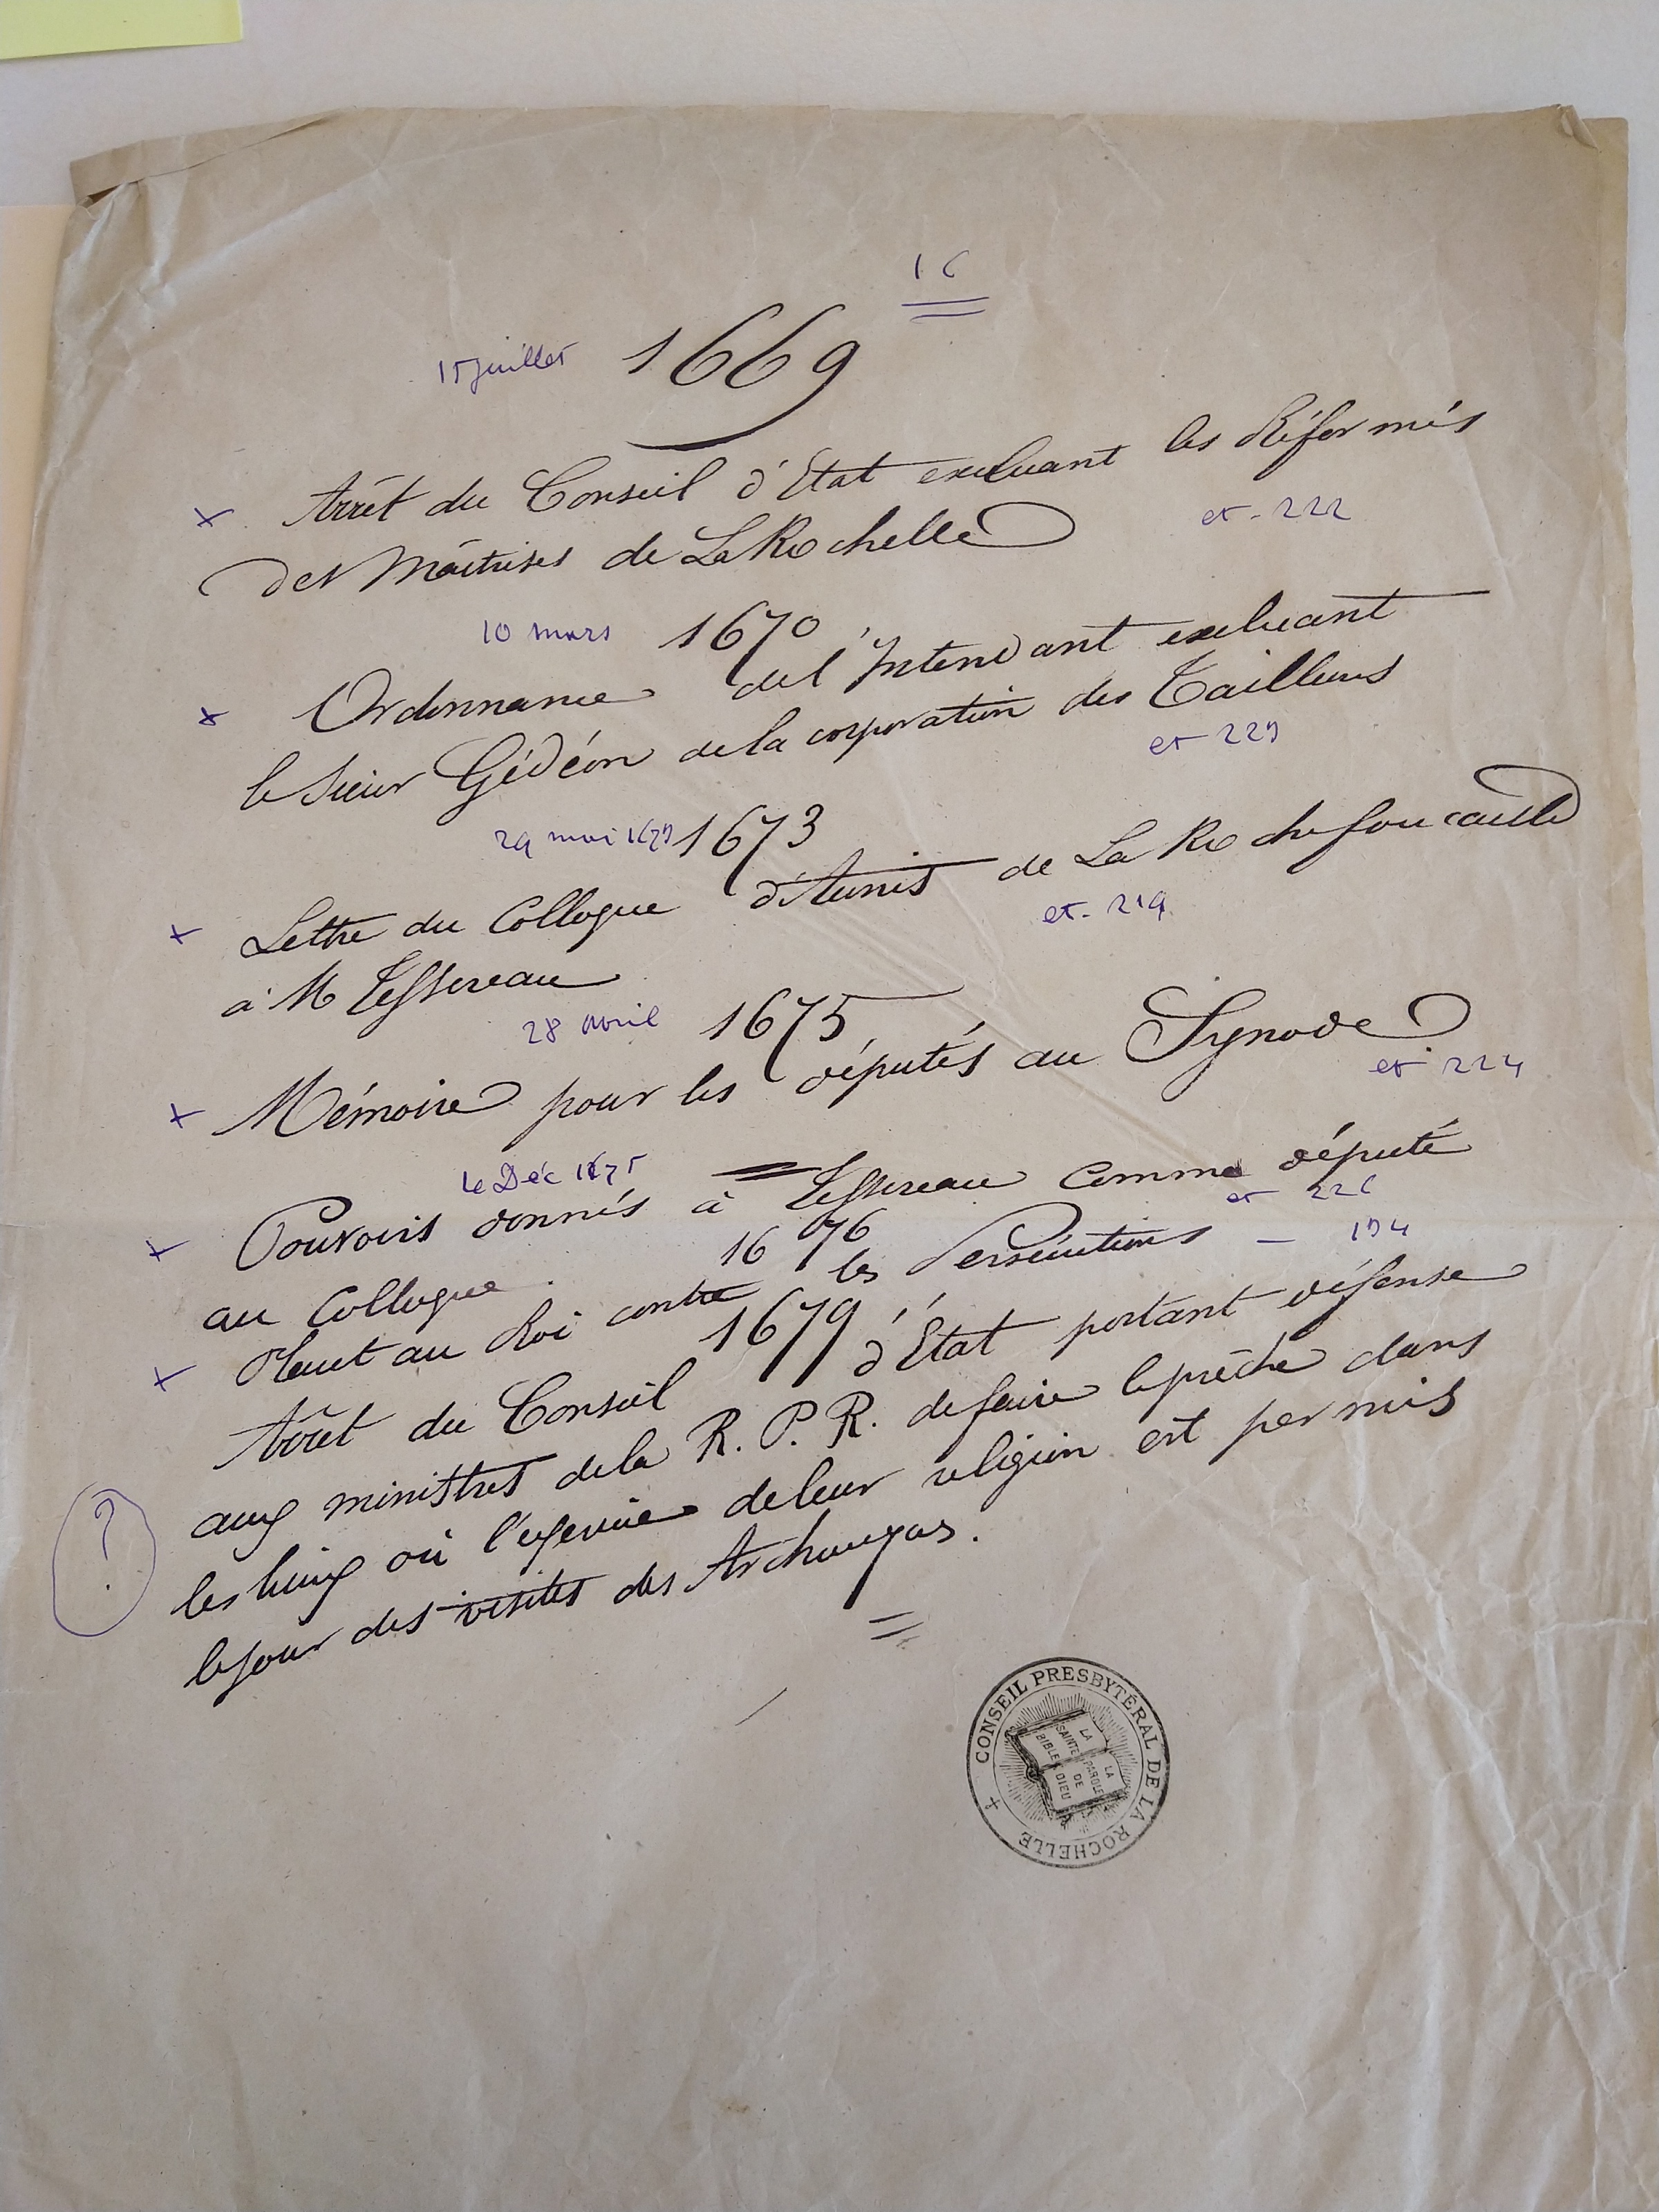 16
15 juillet 1669
x Arrêt du Conseil d'Etat excluant les Réformés
des Maîtrises de La Rochelle et - 222
10 mars 1670
x Ordonnance de l'Intendant excluant
le Sieur Gédéon de la corporation des Tailleurs
et 229
29 mai 1673
x Lettre du Colloque d'Aunis de La Rochefoucauld
à M Tessereau et - 219
28 avril 1675
x Mémoire pour les députés au Synode
et 224
Déc 1675 =
x Pouvoirs donnés à Tessereau comme député
au Colloque et 226
1676
x Placet au Roi contre les Persécutions - 194
1679
Arrêt du Conseil d'Etat portant défense
aux ministres de la R. P. R. de faire le prêche dans
? les lieux où l'exercice de leur religion est permis
le jour des visites des Archevques.
=
CONSEIL PRESBYTÉRAL DE LA ROCHELLE
LA SAINTE BIBLE
LA PAROLE DE DIEU